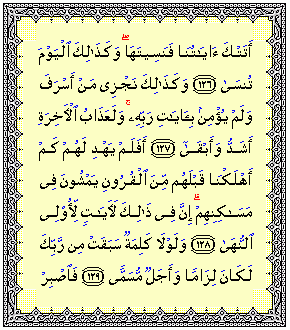 أَتَتْكَ ءَايَـٰتُنَا فَنَسِيتَهَا ۖ وَكَذَٰلِكَ ٱلْيَوْمَ
تُنسَىٰ ﴿١٢٦﴾ وَكَذَٰلِكَ نَجْزِى مَنْ أَسْرَفَ
وَلَمْ يُؤْمِنۢ بِـَٔايَـٰتِ رَبِّهِۦ ۚ وَلَعَذَابُ ٱلْـَٔاخِرَةِ
أَشَدُّ وَأَبْقَىٰٓ ﴿١٢٧﴾ أَفَلَمْ يَهْدِ لَهُمْ كَمْ
أَهْلَكْنَا قَبْلَهُم مِّنَ ٱلْقُرُونِ يَمْشُونَ فِى
مَسَـٰكِنِهِمْ ۗ إِنَّ فِى ذَٰلِكَ لَـَٔايَـٰتٍ لِّأُو۟لِى
ٱلنُّهَىٰ ﴿١٢٨﴾ وَلَوْلَا كَلِمَةٌ سَبَقَتْ مِن رَّبِّكَ
لَكَانَ لِزَامًا وَأَجَلٌ مُّسَمًّى ﴿١٢٩﴾ فَٱصْبِرْ